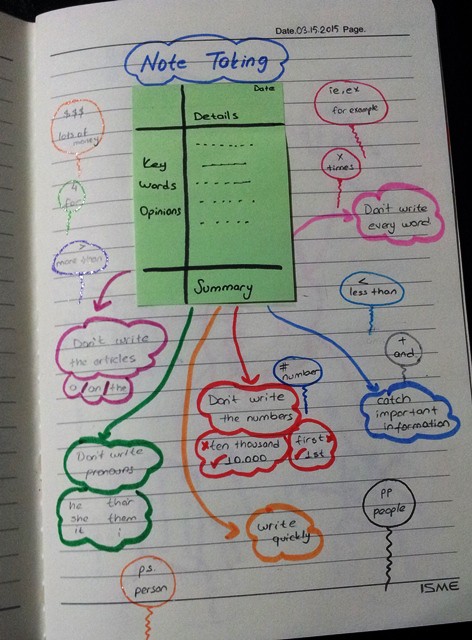 Date.03.15.2015 Page.
Note Taking
Date
Details
Key
Words
Opinions
Summary
$$$
lots of
money
4
for
>
more than
ie,ex
for example
x
times
Don't write
every word
<
less than
+
and
Don't write
the articles
a/an/the
#
number
Don't write
the numbers
x ten thousand
✓ 10.000
first x
✓ 1st
catch
important
information
Don't write
pronouns
he their
she them
it i
write
quickly
PP
people
ps.
person
ISME